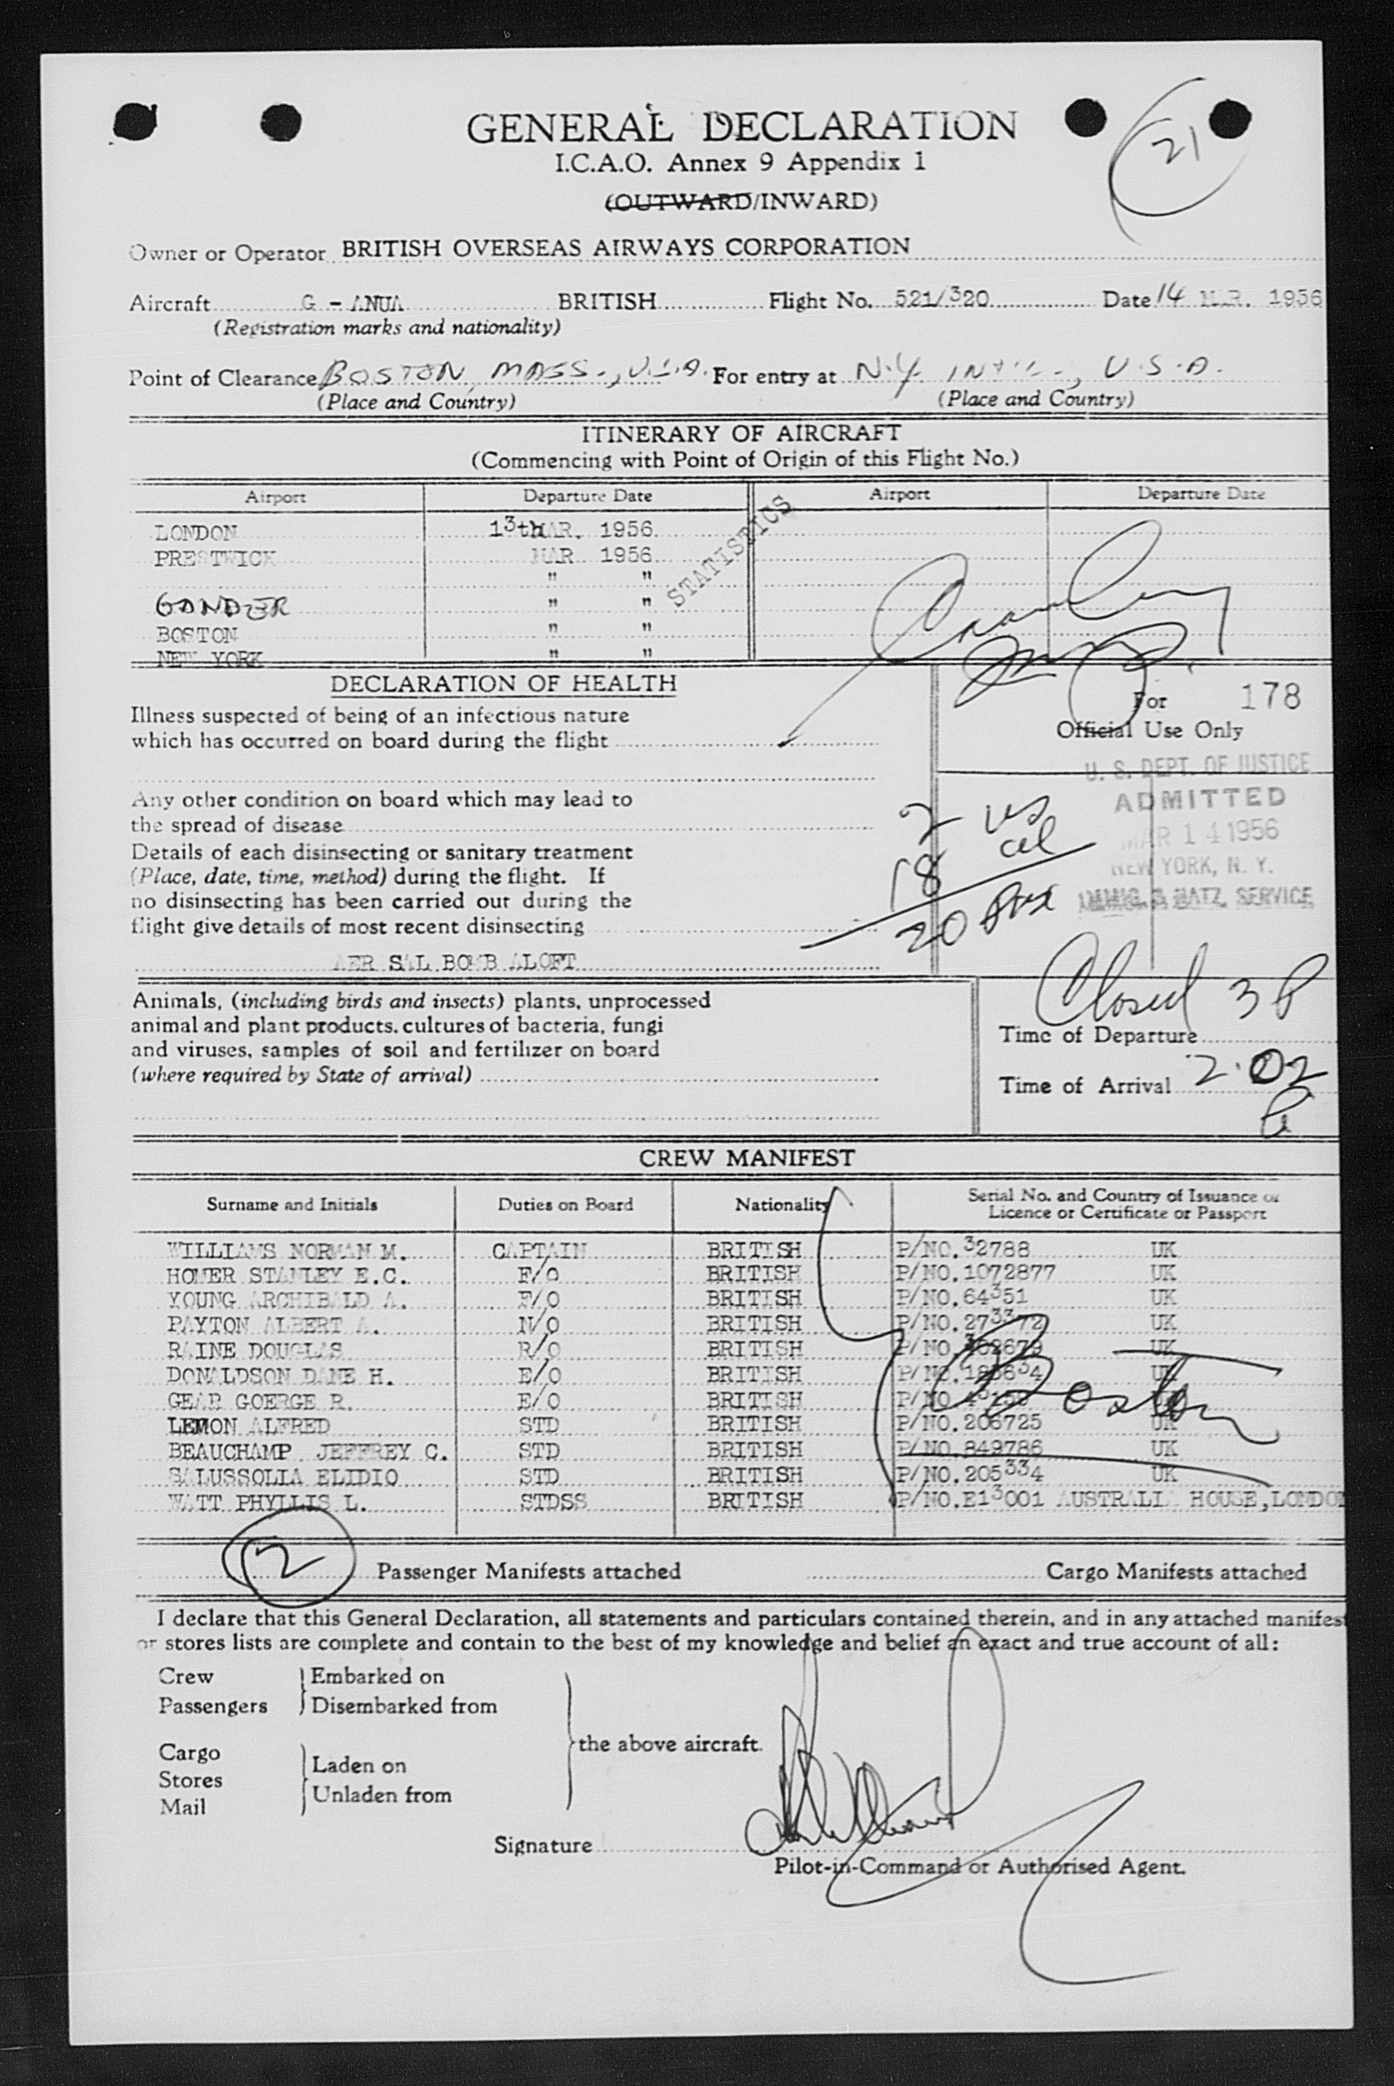 21
GENERAL DECLARATION
I.C.A.O. Annex 9 Appendix 1
(OUTWARD/INWARD)
Owner or Operator BRITISH OVERSEAS AIRWAYS CORPORATION
Aircraft G - ANUA BRITISH Flight No. 521/320 Date 14 MAR. 1956
(Registration marks and nationality)
Point of Clearance BOSTON, MASS., U.S.A. For entry at N.Y. INT'L., U.S.A.
(Place and Country) (Place and Country)
ITINERARY OF AIRCRAFT
(Commencing with Point of Origin of this Flight No.)
Airport Departure Date Airport Departure Date
LONDON 13th MAR. 1956
PRESTWICK MAR 1956
" "
GANDER " "
BOSTON " "
NEW YORK " "
STATISTICS
DECLARATION OF HEALTH
Illness suspected of being of an infectious nature
which has occurred on board during the flight
For 178
Official Use Only
Any other condition on board which may lead to
the spread of disease
Details of each disinsecting or sanitary treatment
(Place, date, time, method) during the flight. If
no disinsecting has been carried out during the
flight give details of most recent disinsecting
AER SAL BOMB ALOFT
U. S. DEPT. OF JUSTICE
ADMITTED
MAR 14 1956
NEW YORK, N. Y.
IMMIG. & NATZ. SERVICE
2 us
18 cel
20
Animals, (including birds and insects) plants, unprocessed
animal and plant products, cultures of bacteria, fungi
and viruses, samples of soil and fertilizer on board
(where required by State of arrival)
Closed 3 P
Time of Departure
Time of Arrival 2.02 P
CREW MANIFEST
Surname and Initials Duties on Board Nationality Serial No. and Country of Issuance or
Licence or Certificate or Passport
WILLIAMS NORMAN M. CAPTAIN BRITISH P/NO.32788 UK
HOMER STANLEY E.C. F/O BRITISH P/NO.1072877 UK
YOUNG ARCHIBALD A. F/O BRITISH P/NO.64351 UK
PAYTON ALBERT A. N/O BRITISH P/NO.273372 UK
RAINE DOUGLAS R/O BRITISH P/NO. UK
DONALDSON DANE H. E/O BRITISH P/NO. UK
GEAR GOERGE R. E/O BRITISH P/NO. UK
LEMON ALFRED STD BRITISH P/NO.206725 UK
BEAUCHAMP JEFFREY C. STD BRITISH P/NO.849786 UK
SALUSSOLIA ELIDIO STD BRITISH P/NO.205334 UK
WATT PHYLLIS L. STDSS BRITISH P/NO.E13001 AUSTRALIA HOUSE, LONDO
Boston
2 Passenger Manifests attached Cargo Manifests attached
I declare that this General Declaration, all statements and particulars contained therein, and in any attached manifest
or stores lists are complete and contain to the best of my knowledge and belief an exact and true account of all:
Crew Embarked on
Passengers Disembarked from
the above aircraft.
Cargo Laden on
Stores Unladen from
Mail
Signature
Pilot-in-Command or Authorised Agent.